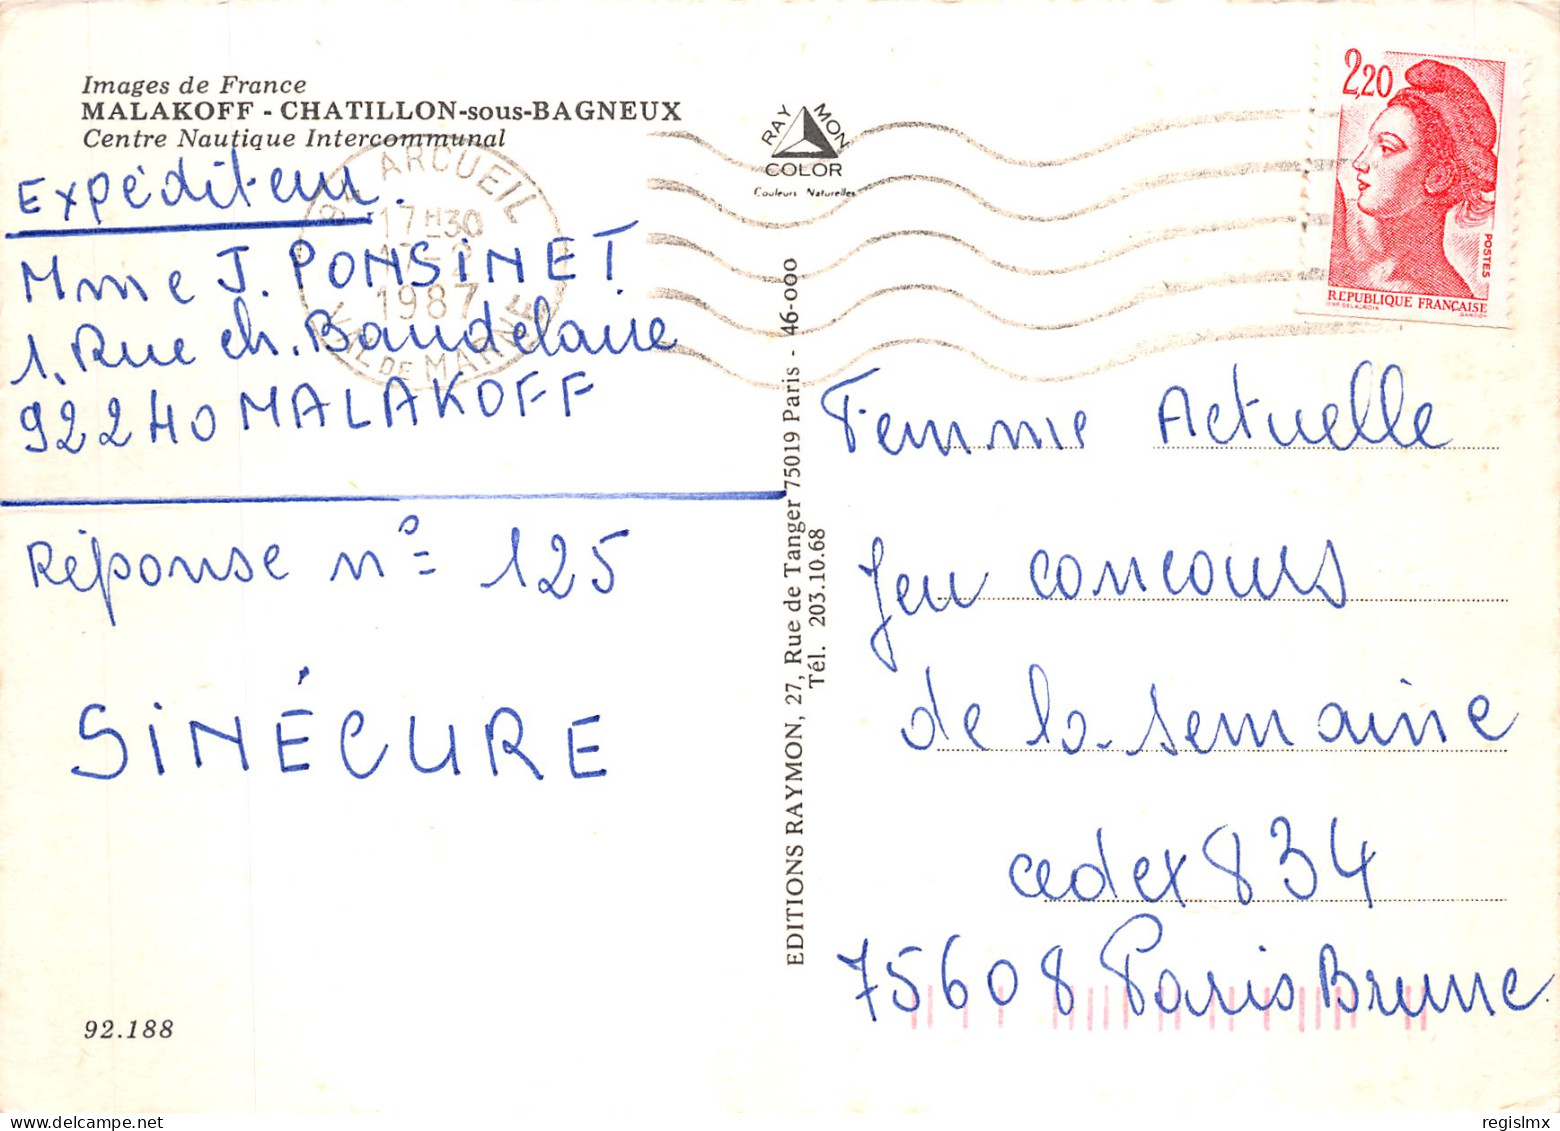 Images de France
MALAKOFF - CHATILLON-sous-BAGNEUX
Centre Nautique Intercommunal
RAYMON
COLOR
Couleurs Naturelles
94 ARCUEIL
17H30
1987
VAL DE MARNE
2,20
POSTES
REPUBLIQUE FRANÇAISE
Expéditeur.
Mme J. PONSINET
1, Rue ch. Baudelaire
92240 MALAKOFF
Réponse n° 125
SINÉCURE
92.188
EDITIONS RAYMON, 27, Rue de Tanger 75019 Paris - 46-000
Tél. 203.10.68
Femme Actuelle
Jeu concours
de la semaine
cedex 834
75608 Paris Brune
regislmx